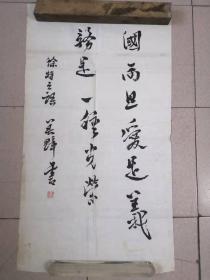 國而且愛是義
務是一種光榮
徐特立語 書